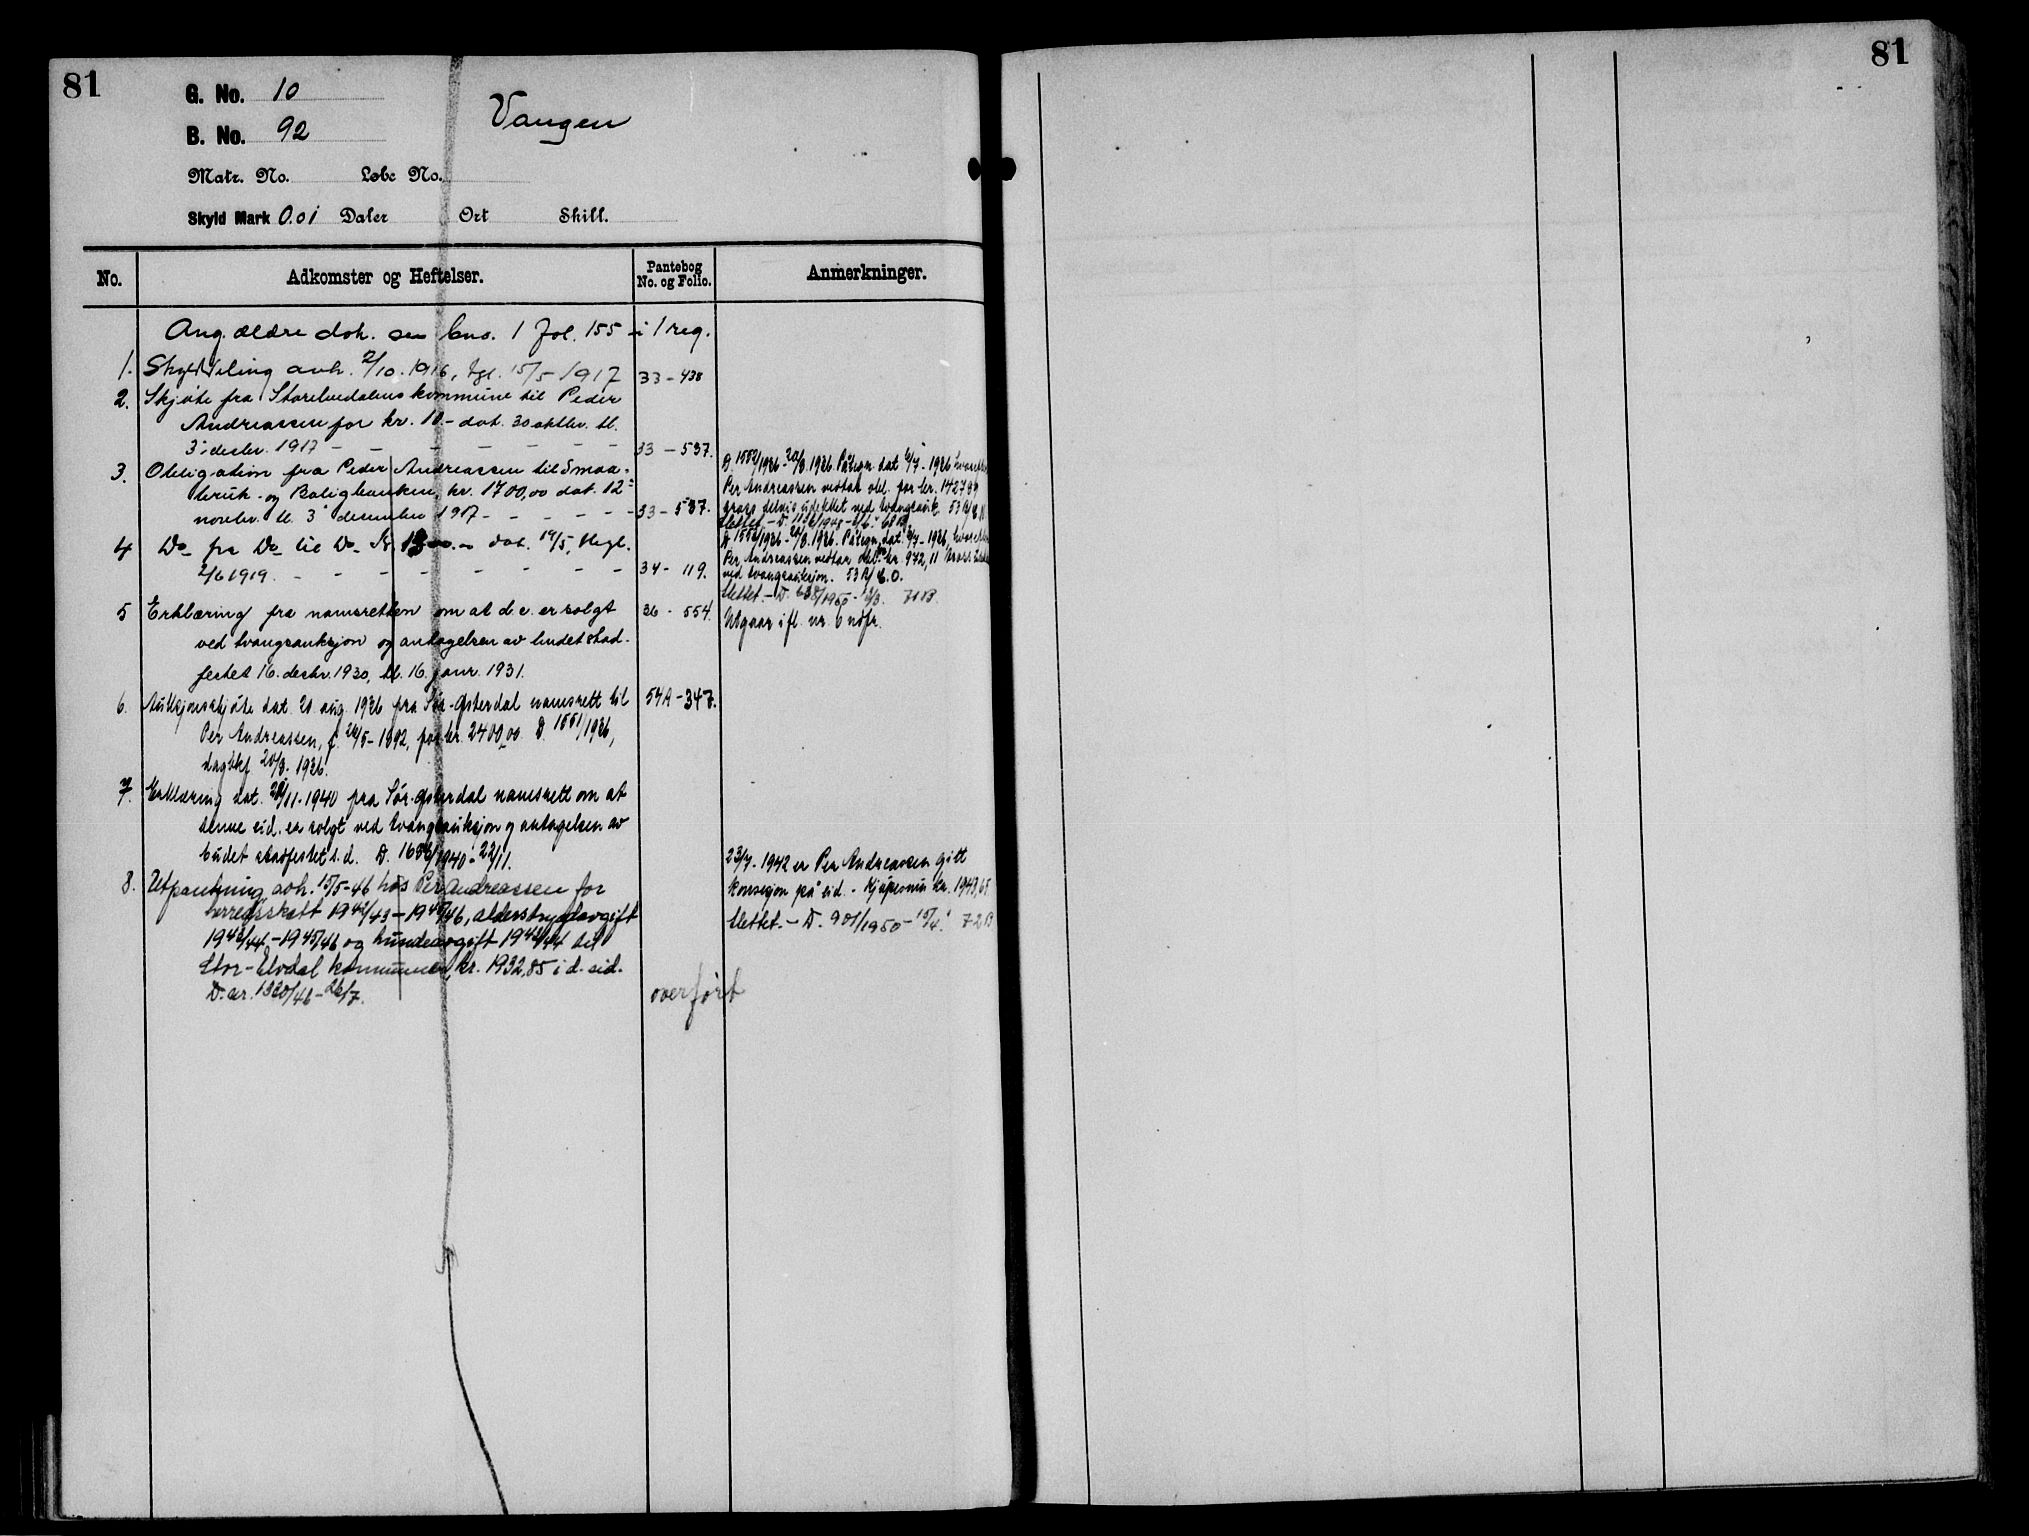 81
G. No. 10
B. No. 92
Vangen
Matr. No. Løbe No.
Skyld Mark 0.01 Daler Ort Skill.
No. Adkomster og Heftelser. Pantebog No. og Folio. Anmerkninger.
Ang. ældre dok. se bno. 1 fol. 155 i 1 reg.
1. Skylddeling avh. 2/10. 1916, tgl. 15/5 1917 33 - 438
2. Skjøte fra Storelvedalens kommune til Peder
Andreassen for kr. 10 - dat. 30 oktbr. tl.
3' desbr. 1917 - - - - - - - 33 - 537.
3. Obligation fra Peder Andreassen til Smaa-
bruk- og Boligbanken, kr. 1700,00 dat. 12'
novbr. tl. 3' desember 1917 - - - - - 33 - 537.
D. 1552/1936 - 20/8. 1936. Påtegn. dat 6/7 - 1936 hvorefter
Per Andreassen vedtar obl. for kr. 1427,89
delvis udekket ved tvangsauk. 53
Slettet - D.
4 Do fra Do til Do Kr. 1300.- dat. 19/5, thgl.
2/6 1919. - - - - - - - - 34 - 119.
1936 - 20/8. 1936. Påtegn. dat. 6/7 - 1936, hvorefter
Per Andreassen vedtar obl. kr 972,11
ved tvangsauksjon. 53
Slettet. - D. 638/1950 - 71B.
5 Erklæring fra namsretten om at d. e. er solgt 36 - 554.
ved tvangsauksjon og antagelsen av budet stad-
festet 16. desbr. 1930, tl. 16. janr. 1931.
Utgaar ifl. nr. 6 ndfr.
6. Auksjonsskjøte dat. 20. aug. 1936 fra Sør-Østerdal namsrett til 54A - 347.
Per Andreassen, f. 26/5 - 1892, for kr. 2400,00. D. 1551/1936,
dagbkf 20/8. 1936.
7. Erklæring dat. 20/11 - 1940 fra Sør-Østerdal namsrett om at
denne eid. er solgt ved tvangsauksjon og antagelsen av
budet stadfestet s. d. D. 1606/1940 - 22/11.
23/7 - 1942 er Per Andreassen gitt
konsesjon på eid. - Kjøpesum kr. 1943,65
8. Utpantning avh. 15/5 - 46 hos Per Andreassen for
herredsskatt 1942/43 - 1945/46, alderstrygdavgift
1943/44 - 1945/46 og hundeavgift 1943/44 til
Stor-Elvdal kommune, kr. 1932,85 i d. eid.
D. nr. 1320/46 - 26/7.
Slettet. - D. 901/1950 - 15/4. 72B
overført
81